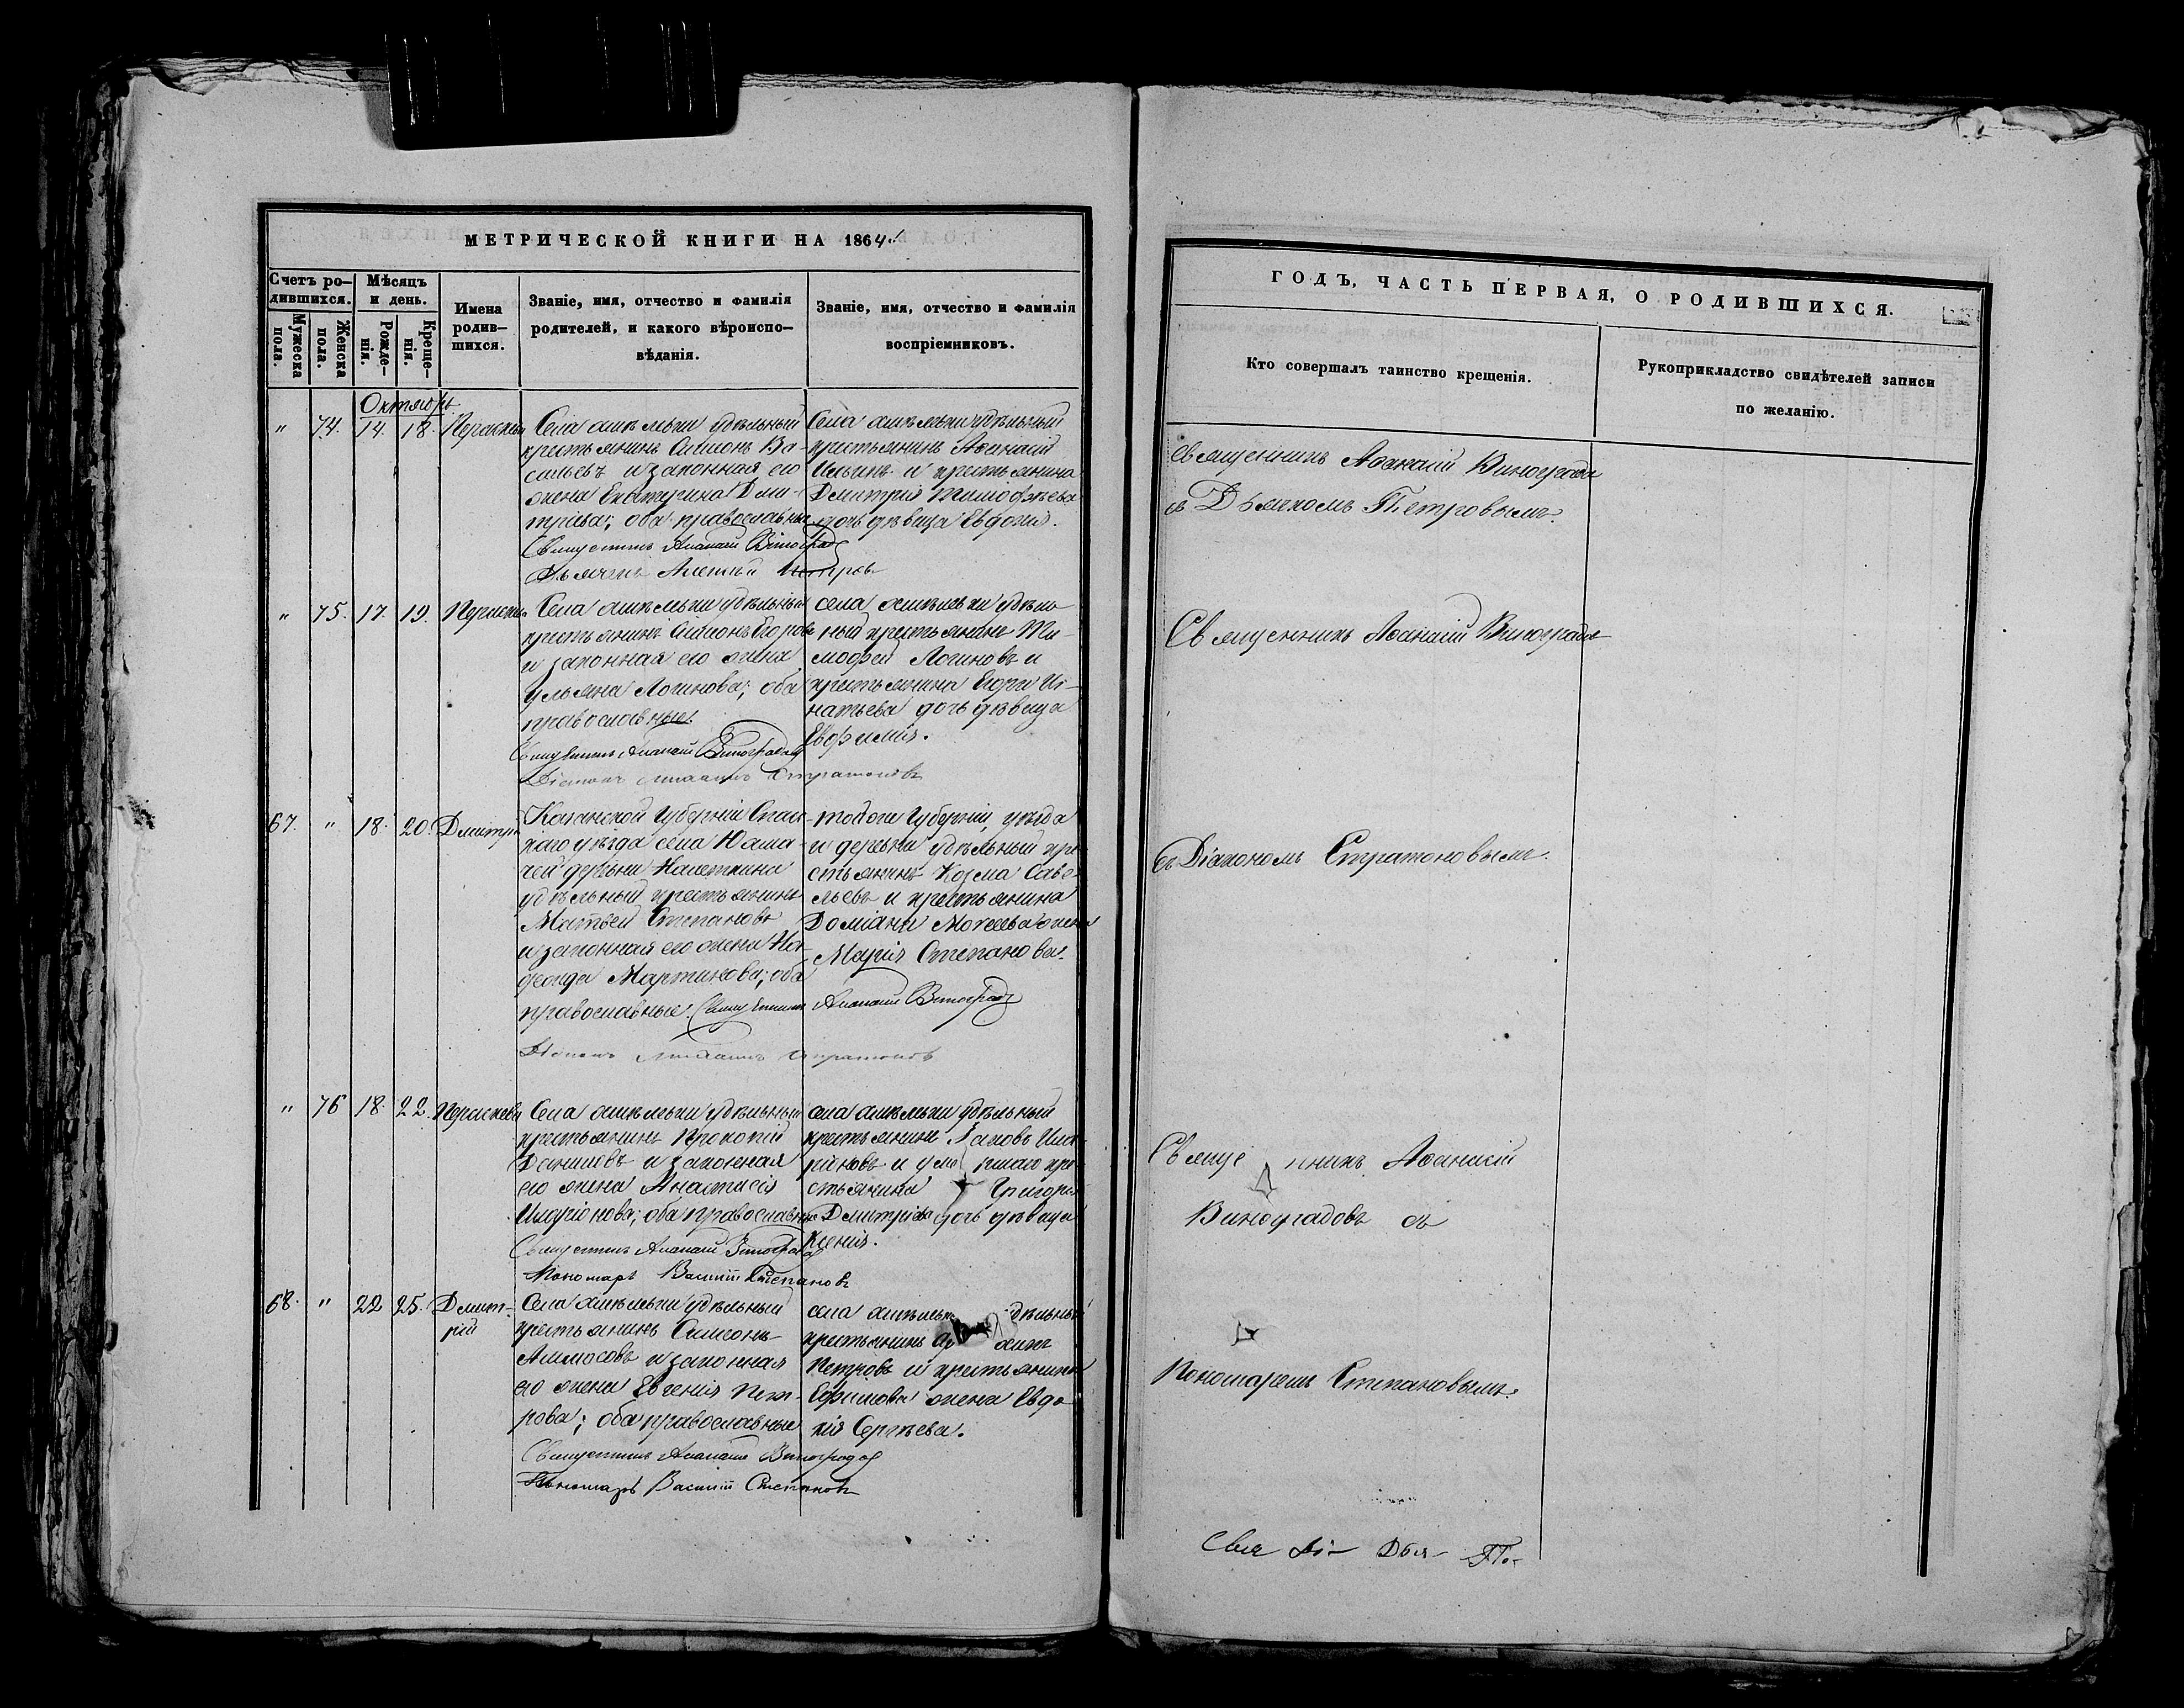 МЕТРИЧЕСКОЙ КНИГИ НА 1864
Счетъ ро-
дившихся.
Мужеска
пола.
Женска
пола.
Мѣсяцъ
и день.
Рожде-
нія.
Креще-
нія.
Имена
родив-
шихся.
Званіе, имя, отчество и фамилія
родителей, и какого вѣроиспо-
вѣданія.
Званіе, имя, отчество и фамилія
воспріемниковъ.
Октябрь
" 74. 14. 18.
Села удѣльный
крестьянинъ Симіонъ Ва-
сильевъ и законная его
жена Екатерина Дми-
тріева; оба православные
Священникъ Афанасій Виноградовъ
Дьячекъ Алексѣй Петровъ
Села удѣльный
крестьянинъ Афанасій
Ильинъ и крестьянина
Дмитрія Тимофѣева
дочь дѣвица Евдокія.
" 75. 17. 19.
Села удѣльный
крестьянинъ Симіонъ Егоровъ
и законная его жена
Ульяна Логинова; оба
православные.
Священникъ Афанасій Виноградовъ
Діаконъ Михаилъ Стратоновъ
села удѣль-
ный крестьянинъ Ти-
мофей Логиновъ и
крестьянина Егора Иг-
натьева дочь дѣвица
Евфимія.
67. " 18. 20. Дмитрій
Казанской Губерніи Спас-
каго уѣзда села Юхма-
чей деревни
удѣльный крестьянинъ
Матвей Степановъ
и законная его жена На-
дежда Мартинова; оба
православные. Священникъ Афанасій Виноградовъ
Діаконъ Михаилъ Стратоновъ
тойже Губерніи, уѣзда
и деревни удѣльный кре-
стьянинъ Козма Саве-
льевъ и крестьянина
Доміана Мокеева жена
Марія Степанова.
" 76 18. 22. Параскева
Села удѣльный
крестьянинъ Прокопій
Даниловъ и законная
его жена Анастасія
Иларіонова; оба православные
Священникъ Афанасій Виноградовъ
Пономарь Василій Степановъ
села удѣльный
крестьянинъ Іаковъ Ила-
ріоновъ и умершаго кре-
стьянина Григорія
Дмитріева дочь дѣвица
Ксенія.
68. " 22 25. Дмит-
рій
Села удѣльный
крестьянинъ Симеонъ
и законная
его жена Евгенія Пет-
рова; оба православные
Священникъ Афанасій Виноградов
Пономарь Василій Степановъ
села удѣльный
крестьянинъ
Петровъ и крестьянина
Ефимова жена Евдо-
кія Сергѣева.
ГОДЪ, ЧАСТЬ ПЕРВАЯ, О РОДИВШИХСЯ.
Кто совершалъ таинство крещенія.
Рукоприкладство свидѣтелей записи
по желанію.
Священникъ Афанасій Виноградовъ
съ Дьячкомъ Петровымъ.
Священникъ Афанасій Виноградовъ
съ Діакономъ Стратоновымъ.
Священникъ Афанасій
Виноградовъ съ
Пономаремъ Степановымъ.
Свя Ді- Дья- По-